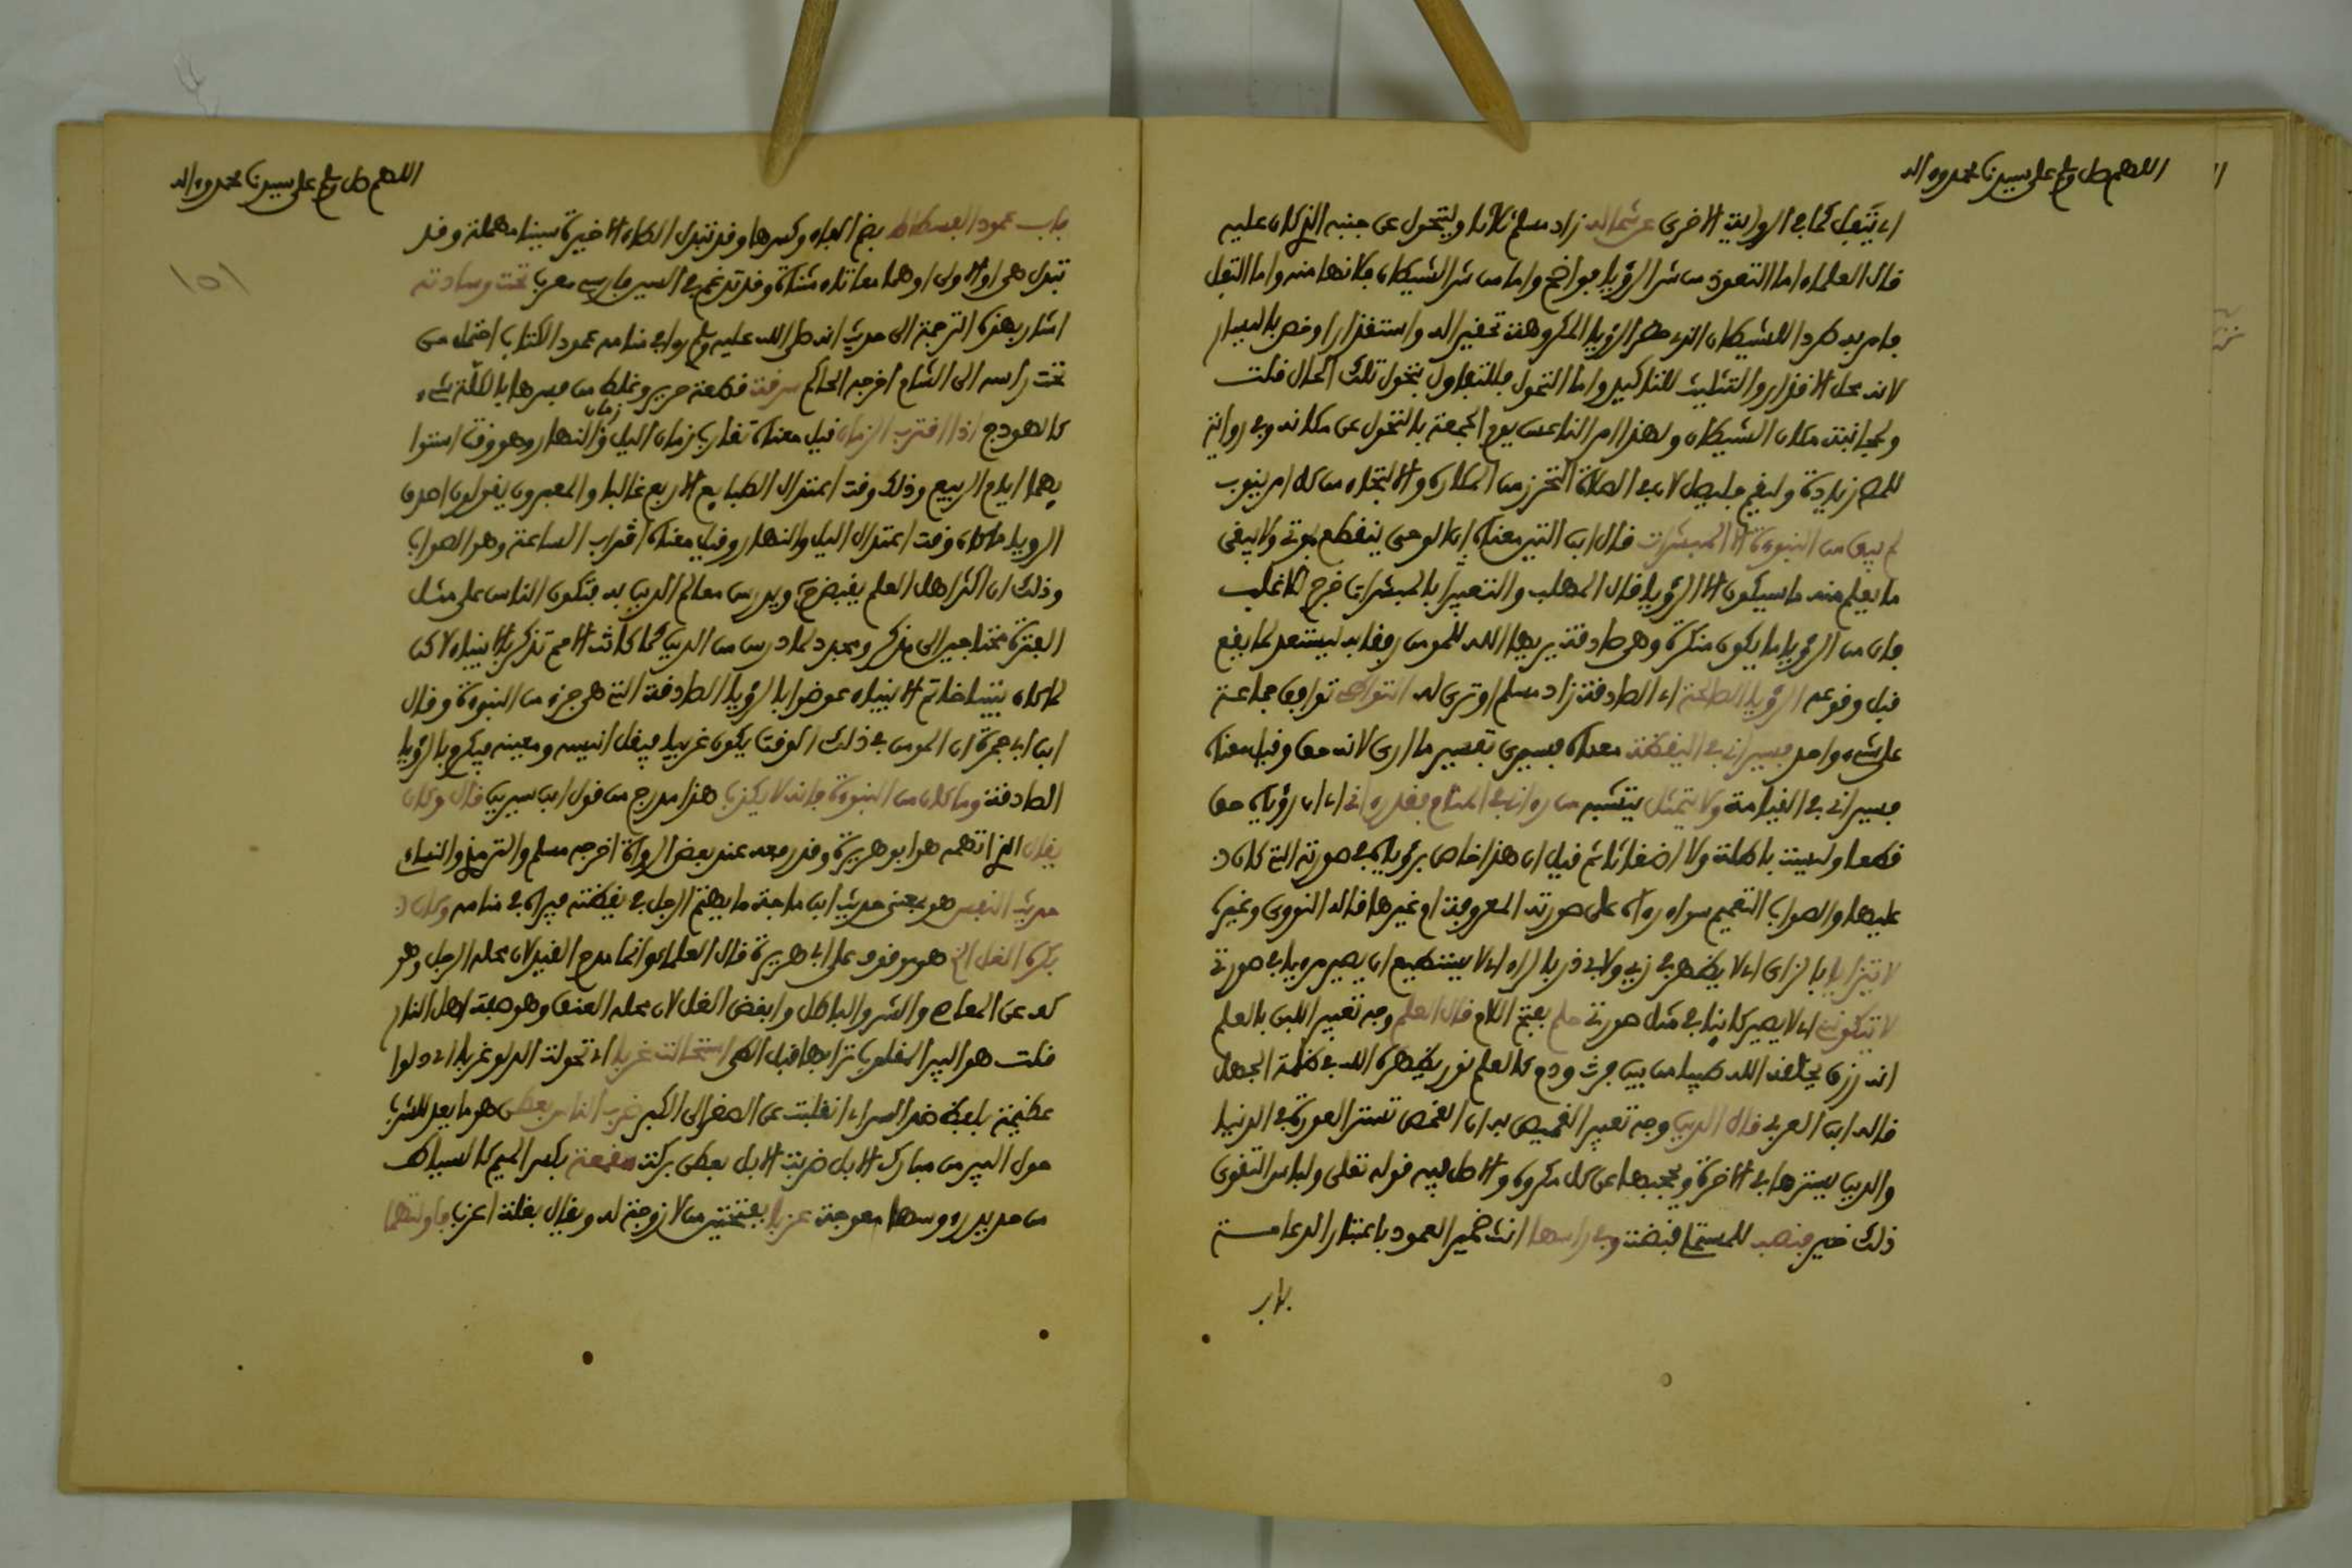 اللهم صل وسلم على سيدنا محمد وءاله
اي يتفل كما في الرواية الاخرى عن شماله زاد مسلم ثلاثا وليتحول عن جنبه الذي كان عليه
قال العلماء اما التعوذ من شر الرؤيا فواضح واما من شر الشيطان فلانها منه واما التفل
فامر به طردا للشيطان الذي حضر الرؤيا المكروهة تحقيرا له واستقذارا وخص باليسار
لانه محل الاقذار والتثليث للتاكيد واما التحول فللتفاول بتحول تلك الحال قلت
ولمجانبة مكان الشيطان ولهذا امر الناعس يوم الجمعة بالتحول عن مكانه وفي رواية
للمص زيادة وليقم فليصل لان في الصلاة التحرز من المكاره والالتجاء من كل امر ينوب
لم يبق من النبوة الا المبشرات قال ابن التين معناه ان الوحي ينقطع بموتي ولا يبقى
ما يعلم منه ما سيكون الا الرؤيا قال المهلب والتعبير بالمبشرات خرج للاغلب
فان من الرؤيا ما يكون منكرة وهي صادقة يريها الله للمومن رفقا به ليستعد لما يقع
قبل وقوعه الرؤيا الصالحة اي الصادقة زاد مسلم او ترى له التواطؤ توافق جماعة
على شيء واحد فسيراني في اليقظة معناه فسيرى تفسير ما ارى لانه حق وقيل معناه
فسيراني في القيامة ولا يتمثل يتشبه من رءاني في المنام فقد رءاني اي ان رؤياه حق
قطعا وليست باطلة ولا اضغاثا ثم قيل ان هذا خاص برؤياه في صورته التي كان
عليها والصواب التعميم سواء رءاه على صورته المعروفة او غيرها قاله النووي وغيره
لا يتزايا بالزاي اي لا يظهر في زيي ولابي ذر بالراء اي لا يستطيع ان يصير مرءيا في صورتي
لا يتكونني اي لا يصير كائنا في مثل صورتي حلم بفتح اللام قال العلم وجه تعبير اللبن بالعلم
انه رزق يخلقه الله طيبا من بين فرث ودم كالعلم نور يظهره الله في ظلمة الجهل
قاله ابن العربي قال الدين وجه تعبير القميص به ان القمص تستر العورة في الدنيا
والدين يسترها في الاخرة ويحجبها عن كل مكروه والاصل فيه قوله تعلى ولباس التقوى
ذلك خير فنصب للمستملي قبضت وفي راسها انث ضمير العمود باعتبار الدعامة
باب
اللهم صل وسلم على سيدنا محمد وءاله
١٥١
باب عمود الفسطاط بضم الفاء وكسرها وقد تبدل الطاء الاخيرة سينا مهملة وقد
تبدل هي او الاولى او هما معا تاء مثناة وقد تدغم في السين فارسي معرب تحت وسادته
اشار بهذه الترجمة الى حديث انه صلى الله عليه وسلم راى في منامه عمود الكتاب احتمل من
تحت راسه الى الشام اخرجه الحاكم سرقة قطعة حرير وغلط من فسرها بالكلة شيء
كالهودج اذا اقترب الزمان قيل معناه تقارب زمان الليل وزمان النهار وهو وقت استوا
يهما ايام الربيع وذلك وقت اعتدال الطبايع الاربع غالبا والمعبرون يقولون اصدق
الرويا ما كان وقت اعتدال الليل والنهار وقيل معناه اقتراب الساعة وهو الصواب
وذلك ان اكثر اهل العلم يقبض ويدرس معالم الدين به فتكون الناس على مثل
الفترة محتاجين الى مذكر ومجدد لما درس من الدين كما كانت الامم تذكر بالانبياء لاكن
لما كان نبينا خاتم الانبياء عوضوا بالرؤيا الصادقة التي هي جزء من النبوة وقال
ابن ابي جمرة ان المومن في ذلك الوقت يكون غريبا فيقل انيسه ومعينه فيكرم بالرؤيا
الصادقة وما كان من النبوة فانه لا يكذب هذا مدرج من قول ابن سيرين قال وكان
يقال الذي اتهمه هو ابو هريرة وقد رفعه عند بعض الرواة اخرجه مسلم والترمذي والنساءي
حديث النفس هو بمعنى حديث ابن ماجة ما يهتم الرجل في يقظته فيراه في منامه وكان
يكره الغل الخ هو موقوف على ابي هريرة قال العلماء وانما مدح القيد لان محله الرجل وهو
كف عن المعاصي والشر والباطل وابغض الغل لان محله العنق وهو صفة اهل النار
قلت هو البير المقلوب ترابها قبل الطي استحالت غربا اي تحولت الدلو غربا اي دلوا
عظيمة بلفظ ضد السراء انقلبت عن الصغر الى الكبر ضرب الناس بعطن هو ما يعد للشرب
حول البير من مبارك الابل ضربت الابل بعطن بركت مقمعة بكسر الميم كالسياط
من حديد رءوسها معوجة عزبا بفتحتين من لا زوجة له ويقال بقلة اعزب فاولتهما